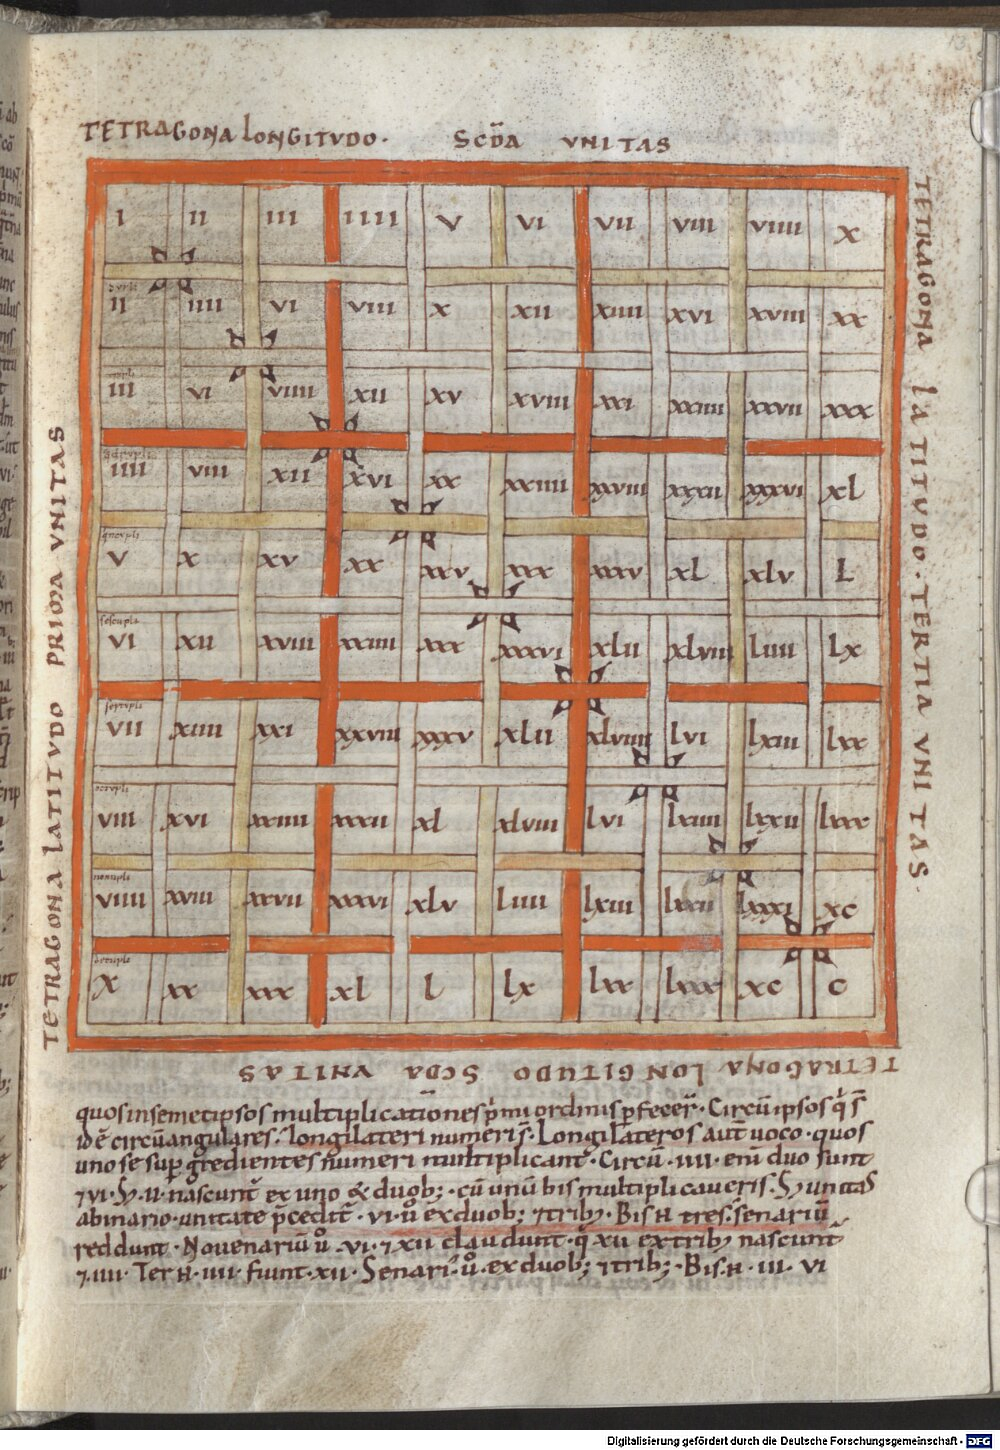 TETRAGONA LONGITVDO. SCD̄A VNITAS
TETRAGONA LATITVDO PRIMA VNITAS
TETRAGONA LATITVDO. TERTIA VNITAS.
I II III IIII V VI VII VIII VIIII X
dupli
II IIII VI VIII X XII XIIII XVI XVIII XX
tripli
III VI VIIII XII XV XVIII XXI XXIIII XXVII XXX
IIII VIII XII XVI XX XXIIII XXVIII XXXII XXXVI XL
V X XV XX XXV XXX XXXV XL XLV L
VI XII XVIII XXIIII XXX XXXVI XLII XLVIII LIIII LX
septupli
VII XIIII XXI XXVIII XXXV XLII XLVIIII LVI LXIII LXX
octupli
VIII XVI XXIIII XXXII XL XLVIII LVI LXIIII LXXII LXXX
nonupli
VIIII XVIII XXVII XXXVI XLV LIIII LXIII LXXII LXXXI XC
decupli
X XX XXX XL L LX LXX LXXX XC C
TETRAGONA LONGITUDO SCDA VNITAS
quos in semetipsos multiplicationes p̄mi ordinis ꝑfecer̄. Circū ipsos q̇ s̄
id ē circū angulares. longilateri numeri s̄. Longilateros aut̄ uoco. quos
uno se suꝑ gredientes numeri multiplicant. Circū. IIII. eni̅ duo sunt
⁊ VI. S; II. nascunt̄ ex uno & duob;. cū unū bis multiplicaueris. S; unitas
abinario. unitate p̄cedit̄. VI. ů ex duob; ⁊ trib;. Bis N tres. senariū
reddunt. Nouenariū ů. VI. ⁊ XII claudunt. q̇ XII ex trib; nascunt̄
⁊ IIII. Ter N. IIII. fiunt. XII. Senari. ů. ex duob; ⁊ trib;. Bis. N. III. VI
Digitalisierung gefördert durch die Deutsche Forschungsgemeinschaft - DFG